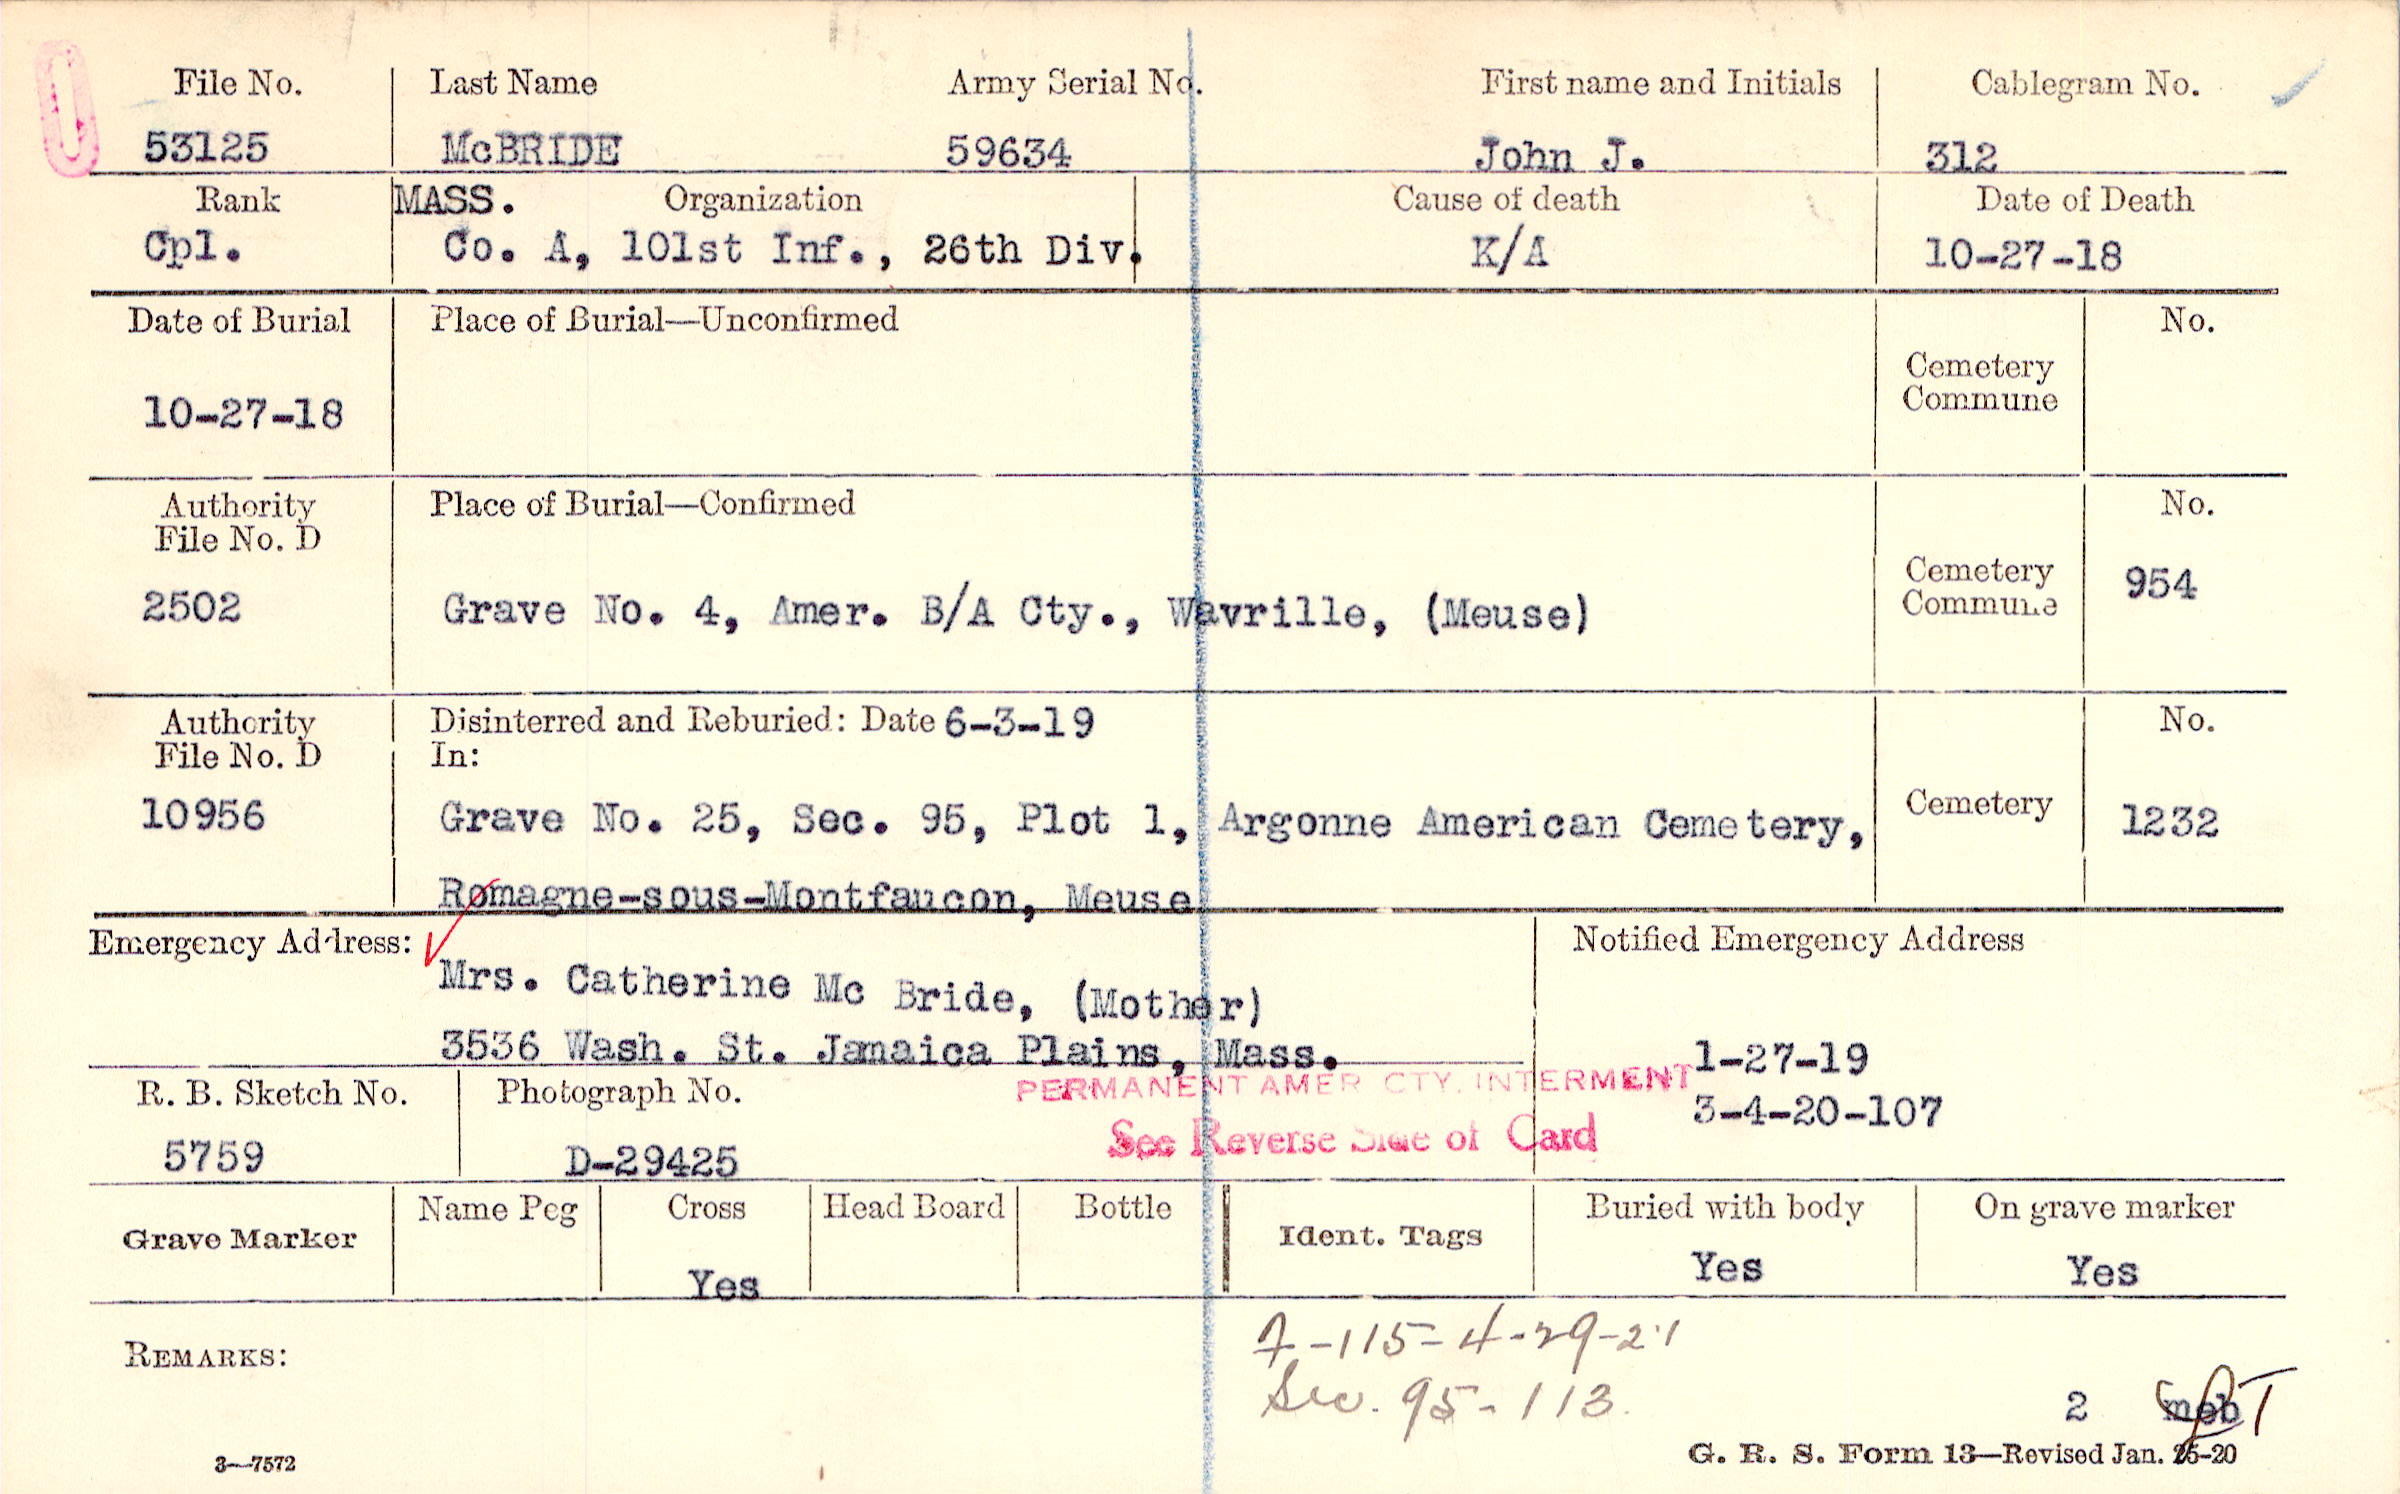 File No. Last Name Army Serial No. First name and Initials Cablegram No.
53125 McBRIDE 59634 John J. 312
Rank MASS. Organization Cause of death Date of Death
Cpl. Co. A, 101st Inf., 26th Div. K/A 10-27-18
Date of Burial Place of Burial—Unconfirmed No.
Cemetery
Commune
10-27-18
Authority Place of Burial—Confirmed No.
File No. D
Cemetery
Commune 954
2502 Grave No. 4, Amer. B/A Cty., Wavrille, (Meuse)
Authority Disinterred and Reburied: Date 6-3-19 No.
File No. D In:
10956 Grave No. 25, Sec. 95, Plot 1, Argonne American Cemetery, Cemetery 1232
Romagne-sous-Montfaucon, Meuse
Emergency Address: Notified Emergency Address
Mrs. Catherine Mc Bride, (Mother)
3536 Wash. St. Jamaica Plains, Mass. 1-27-19
PERMANENT AMER CTY. INTERMENT
R. B. Sketch No. Photograph No. 3-4-20-107
See Reverse Side of Card
5759 D-29425
Grave Marker Name Peg Cross Head Board Bottle Ident. Tags Buried with body On grave marker
Yes Yes Yes
7-115-4-29-21
REMARKS:
Sec. 95-113.
2
3—7572 G. R. S. Form 13—Revised Jan. 26-20